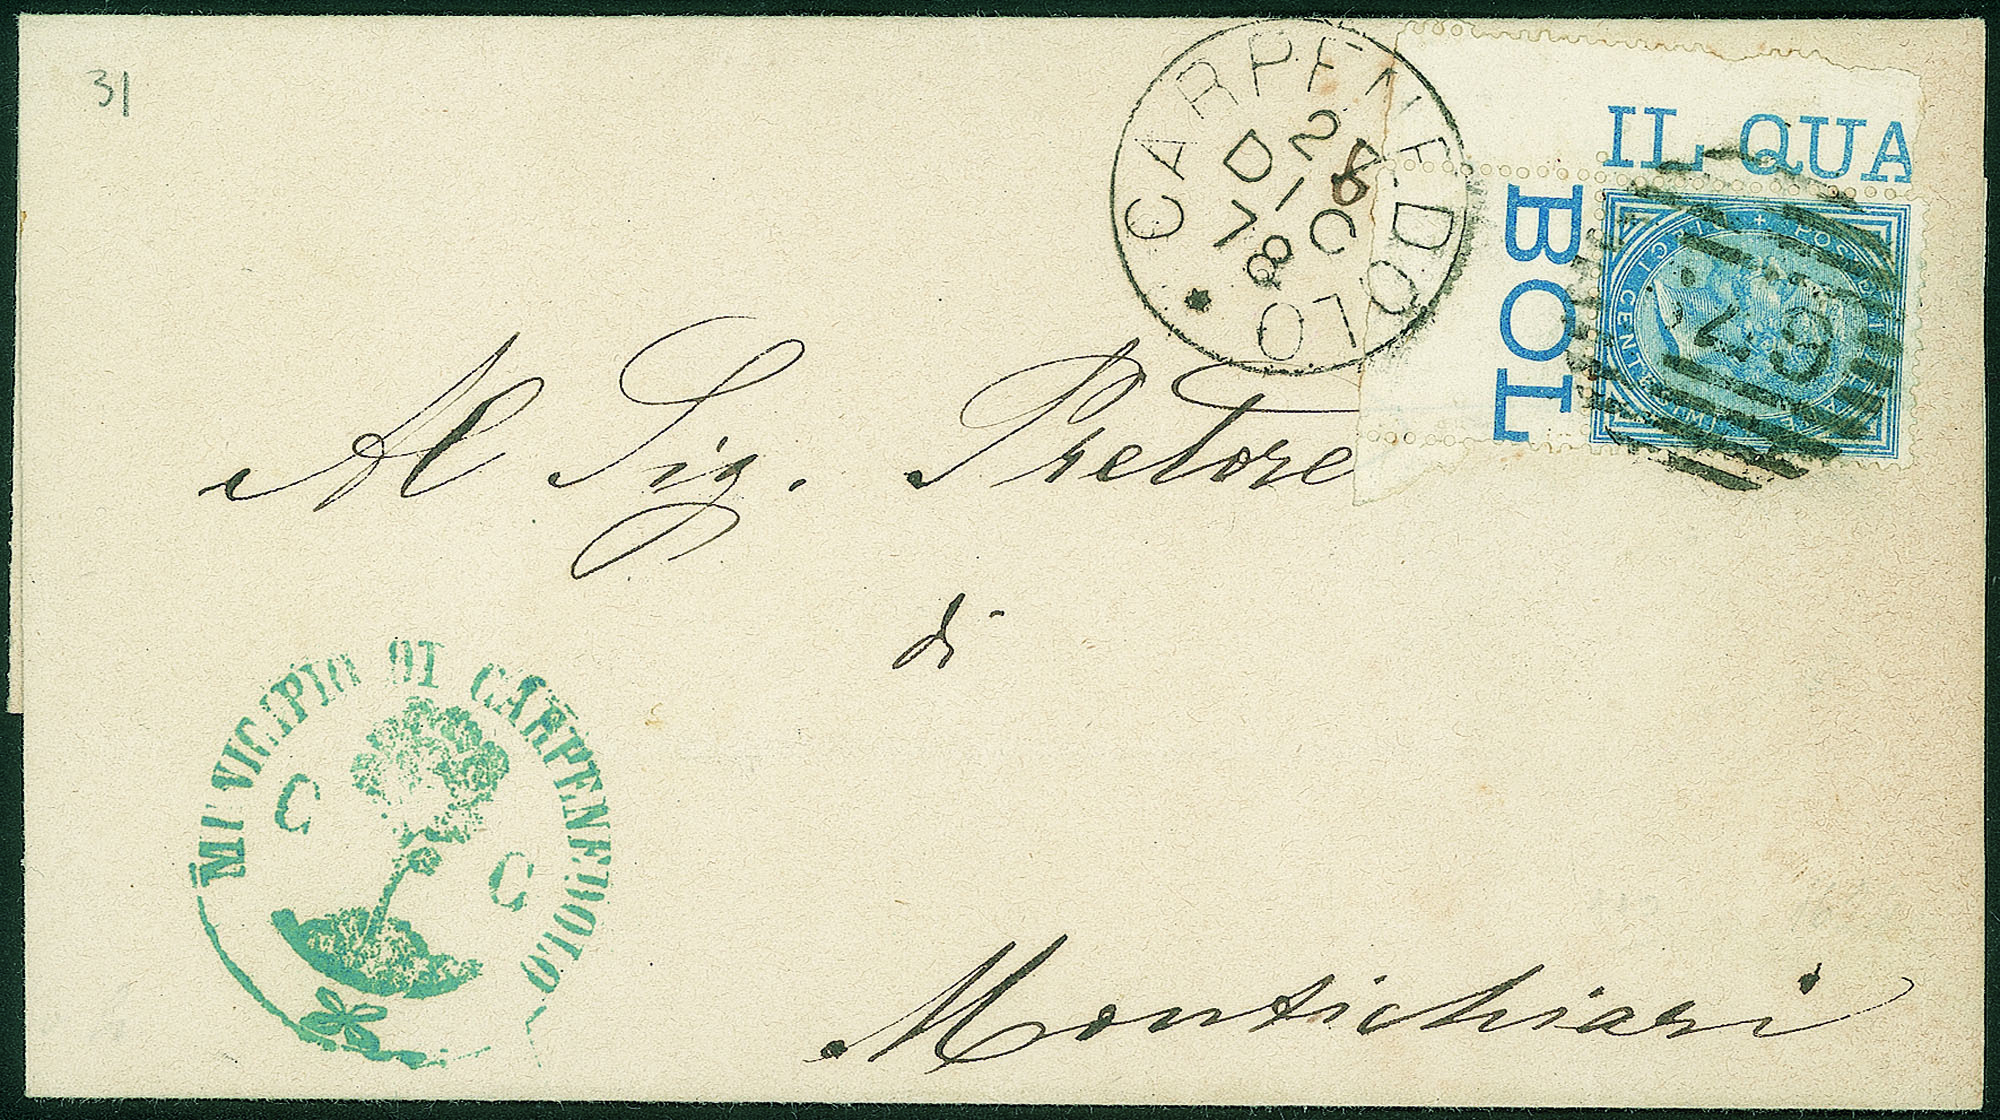 31
CARPENEDOLO
DIC
78
IL QUA
BOL
Al Sig. Pretore
di
Montichiari
MUNICIPIO DI CARPENEDOLO
C C